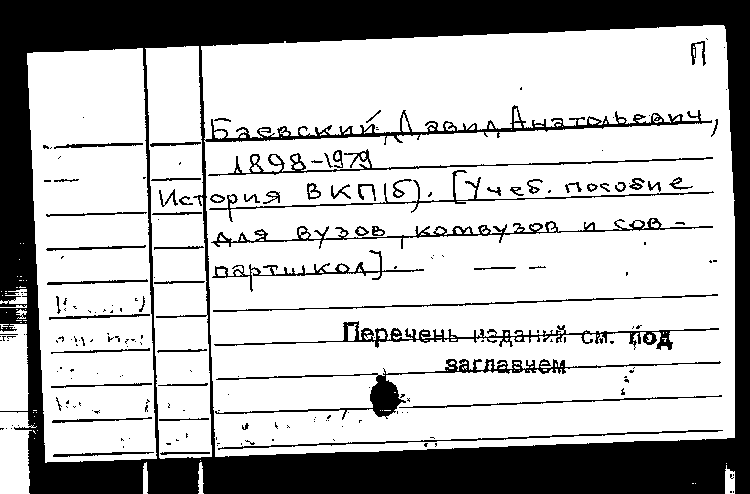 П
Баевский, Давид Анатольевич,
1898-1979
История ВКП(б). [Учеб. пособие
для вузов, комвузов и сов-
партшкол].
Перечень изданий см. под
заглавием